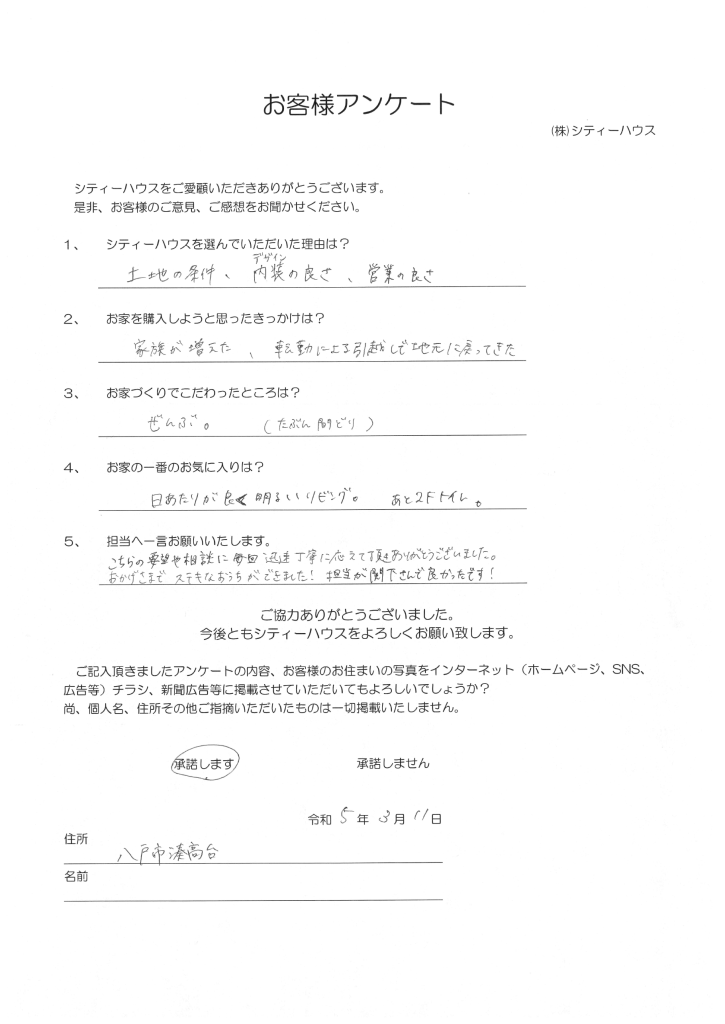 お客様アンケート
(株)シティーハウス
シティーハウスをご愛顧いただきありがとうございます。
是非、お客様のご意見、ご感想をお聞かせください。
1、 シティーハウスを選んでいただいた理由は？
デザイン
土地の条件、内装の良さ、営業の良さ
2、 お家を購入しようと思ったきっかけは？
家族が増えた、転勤による引越しで地元に戻ってきた
3、 お家づくりでこだわったところは？
ぜんぶ。 (たぶん間どり)
4、 お家の一番のお気に入りは？
日あたりが良く明るいリビング。 あと2Fトイレ。
5、 担当へ一言お願いいたします。
こちらの要望や相談に毎回迅速丁寧に応えて頂きありがとうございました。
おかげさまでステキなおうちができました！担当が関下さんで良かったです！
ご協力ありがとうございました。
今後ともシティーハウスをよろしくお願い致します。
ご記入頂きましたアンケートの内容、お客様のお住まいの写真をインターネット（ホームページ、SNS、
広告等）チラシ、新聞広告等に掲載させていただいてもよろしいでしょうか？
尚、個人名、住所その他ご指摘いただいたものは一切掲載いたしません。
承諾します 承諾しません
令和 5 年 3 月 11 日
住所
八戸市湊高台
名前